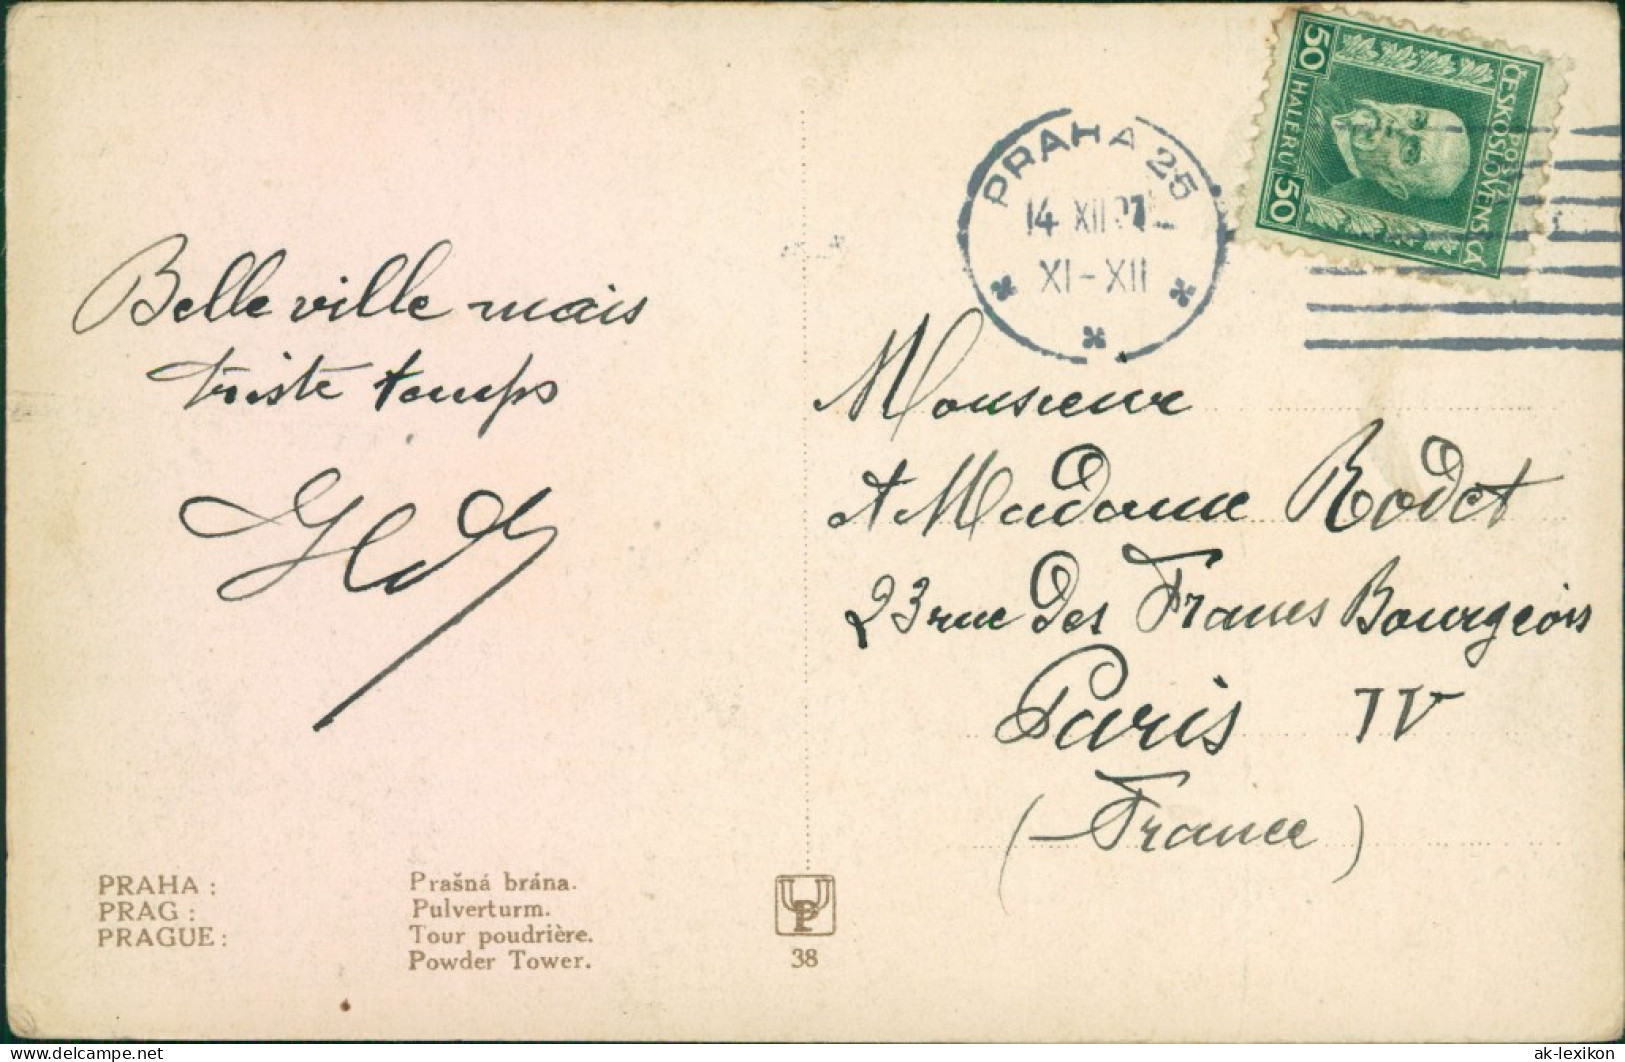 Belle ville mais
triste temps
PRAHA 25
14 XII 27
XI-XII
50 HALÉŘŮ 50
POŠTA
ČESKOSLOVENSKÁ
Monsieur
et Madame Rodet
23 rue des Francs Bourgeois
Paris IV
(France)
PRAHA: Prašná brána.
PRAG: Pulverturm.
PRAGUE: Tour poudrière.
Powder Tower.
UP
38
www.delcampe.net
ak-lexikon